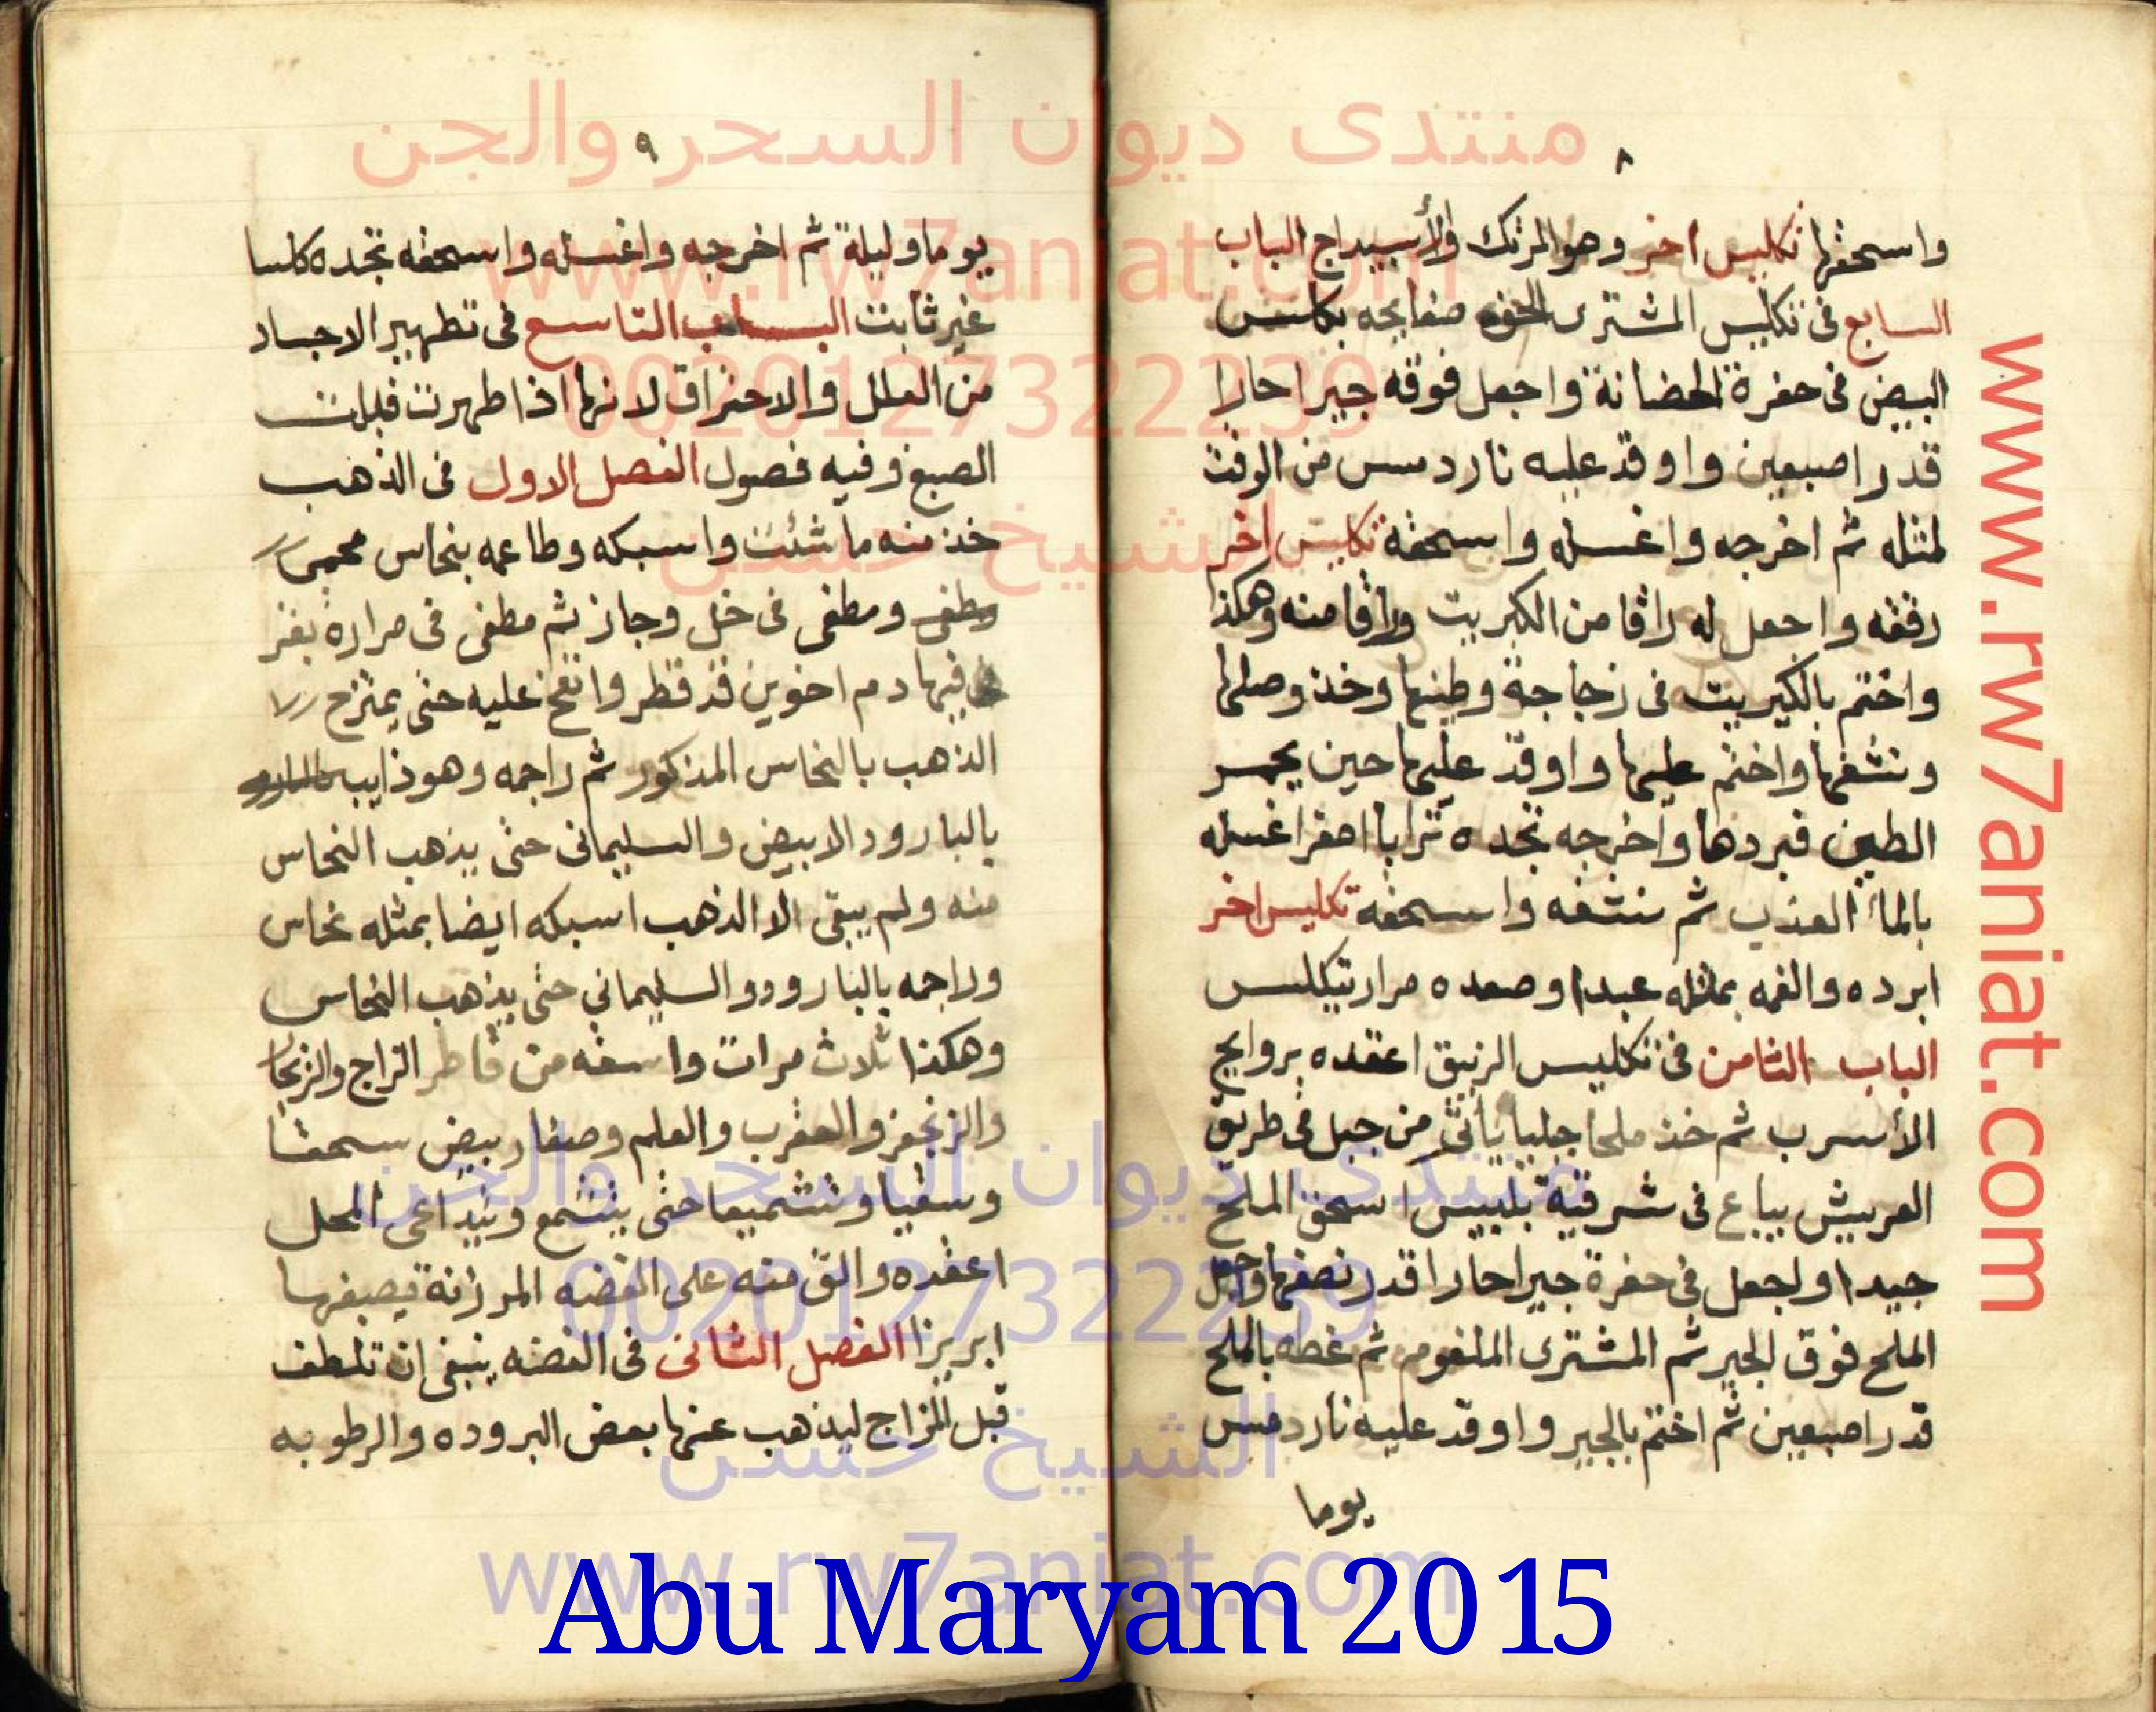 ٨
واسحقها تكليس اخر وهو المرتك والأسبيداج الباب
السابع فى تكليس المشترى صفايحه بكلس
البيض فى حفرة الحضانة واجعل فوقه جيرا حارا
قدر اصبعين واوقد عليه نار دمس من الوقت
لمثله ثم اخرجه واغسله واسحقه تكليس اخر
رققه واجعل له راقا من الكبريت وراقا منه وهكذا
واختم بالكبريت فى زجاجة وطينها وخذ وصلها
ونشفها واختم عليها واوقد عليها حين يحمر
الطين فبردها واخرجه تجده ترابا اصفر اغسله
بالماء العذب ثم نشفه واسحقه تكليس اخر
ابرده والغمه بمثله عبدا وصعده مرار تيكلس
الباب الثامن فى تكليس الزيبق اعقده بروايح
الأسرب ثم خذ ملحا جلبيا يأتى من جبل فى طريق
العريش يباع فى شرقية بلبيس اسحق الملح
جيدا واجعل فى حفرة جيرا حارا قدر نصفها واجعل
الملح فوق الجير ثم المشترى الملغوم ثم غطه بالملح
قدر اصبعين ثم اختم بالجير واوقد عليه نار دمس
يوما
٩
يوما وليلة ثم اخرجه واغسله واسحقه تجده كلسا
غير ثابت البـاب التاسع فى تطهير الاجساد
من العلل والاحتراق لانها اذا طهرت قبلت
الصبغ وفيه فصول الفصل الاول فى الذهب
خذ منه ما شئت واسبكه وطاعمه بنحاس محمى
ومطفى فى خل وجاز ثم مطفى فى مرارة بقر
فيها دم اخوين قد قطر وانفخ عليه حتى يمتزج
الذهب بالنحاس المذكور ثم راجمه وهو ذايب
بالبارود الابيض والسليمانى حتى يذهب النحاس
منه ولم يبقى الا الذهب اسبكه ايضا بمثله نحاس
وراجمه بالبارود والسليمانى حتى يذهب النحاس
وهكذا ثلاث مرات واسقه من قاطر الزاج والزنجار
والزنجفر والعقرب والعلم وصفار بيض سحقا
وسقيا وتشميعا حتى يتشمع وينداعى المحل
اعقده والق منه على الفضه المرزنة يصبغها
ابريزا الفصل الثانى فى الفضه ينبغى ان تلطف
قبل المزاج ليذهب عنها بعض البروده والرطوبه
منتدى ديوان السحر والجن
www.rw7aniat.com
0020127322239
الشيخ حسن
منتدى ديوان السحر والجن
0020127322239
الشيخ حسن
www.rw7aniat.com
www.rw7aniat.com
Abu Maryam 2015